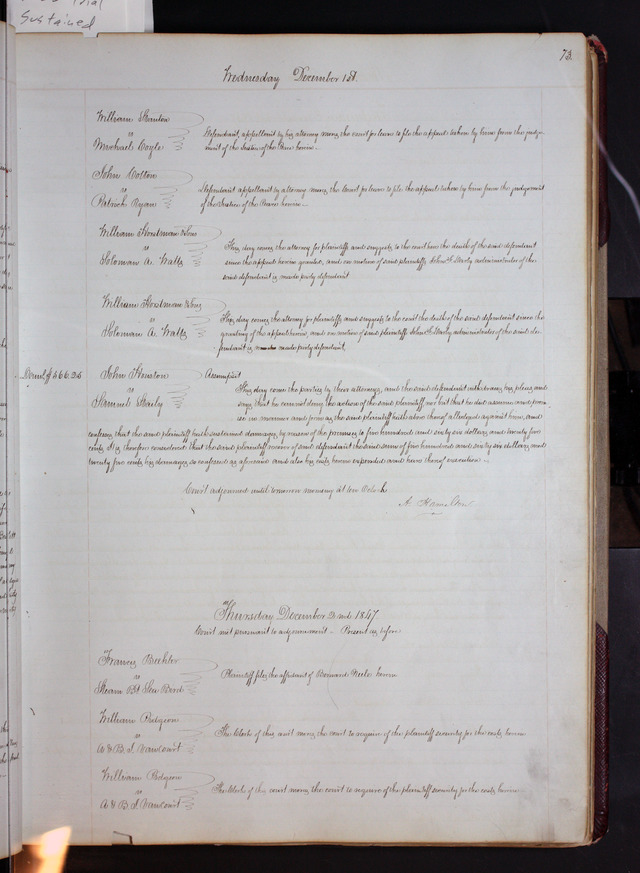 Trial
Sustained
73.
Wednesday December 1st.
William Stanton
vs
Michael Coyle
Defendant, appellant by his attorney moves the court for leave to file the appeal taken by him from the judg-
ment of the Justice of the Peace herein.
John Colton
vs
Patrick Ryan
Defendant appellant by attorney moves the Court for leave to file the appeal taken by him from the judgment
of the Justice of the Peace herein.
William Horstman & Sons
vs
Soloman A. Waltz
This day comes the attorney for plaintiffs and suggests to the court here the death of the said defendant
since the appeal herein granted, and on motion of said plaintiffs John F. administrator of the
said defendant is made party defendant
William Horstman & Sons
vs
Soloman A. Waltz
This day comes the attorney for plaintiffs and suggests to the court the death of the said defendant since the
granting of the appeal herein, and on motion of said plaintiffs John F. administrator of the said de-
fendant is made party defendant,
John Houston
vs
Samuel
Assumpsit
This day come the parties by their attorneys, and the said defendant withdraws his pleas and
says that he cannot deny the action of the said plaintiff nor but that he did assume and prom-
ise in manner and form as the said plaintiff hath above thereof alleged against him, and
confesses that the said plaintiff hath sustained damages by reason of the premises to five hundred and sixty six dollars and twenty five
cents. It is therefore considered that the said plaintiff recover of said defendant the said sum of five hundred and sixty six dollars and
twenty five cents his damages, so confessed as aforesaid and also his costs herein expended and have thereof execution.
Court adjourned until tomorrow morning at ten Oclock
A. Hamilton
Thursday December 2nd 1847
Court met pursuant to adjournment - Present as before
Francis Beehler
vs
Steam Bt
Plaintiff files the affidavit of Bernard herein
William Pidgeon
vs
A & B. S.
The Clerk of this court moves the court to require of the plaintiff security for the costs herein
William Pidgeon
vs
A & B. S.
The Clerk of this court moves the court to require of the plaintiff security for the costs herein